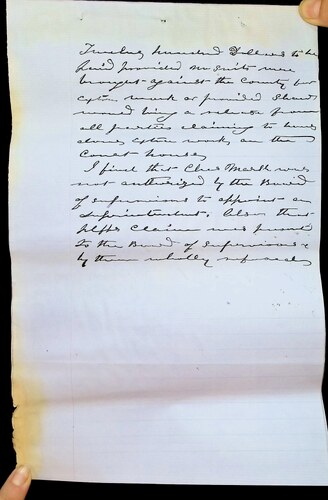 Twelve hundred Dollars to be
paid provided no suits were
brought against the County for
extra work or provided Shea
would bring a release from
all parties claiming to have
done extra work on the
Court house
I find that Chas Marsh was
not authorized by the Board
of supervisors to appoint an
Superintendent. Also that
claim was presented
to the Board of supervisors &
by them wholly refused